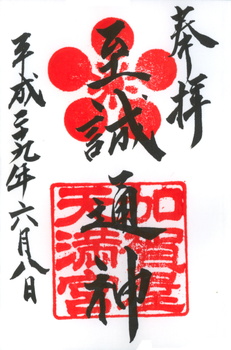 奉拝
至誠通神
加賀屋天満宮
平成二十九年六月八日